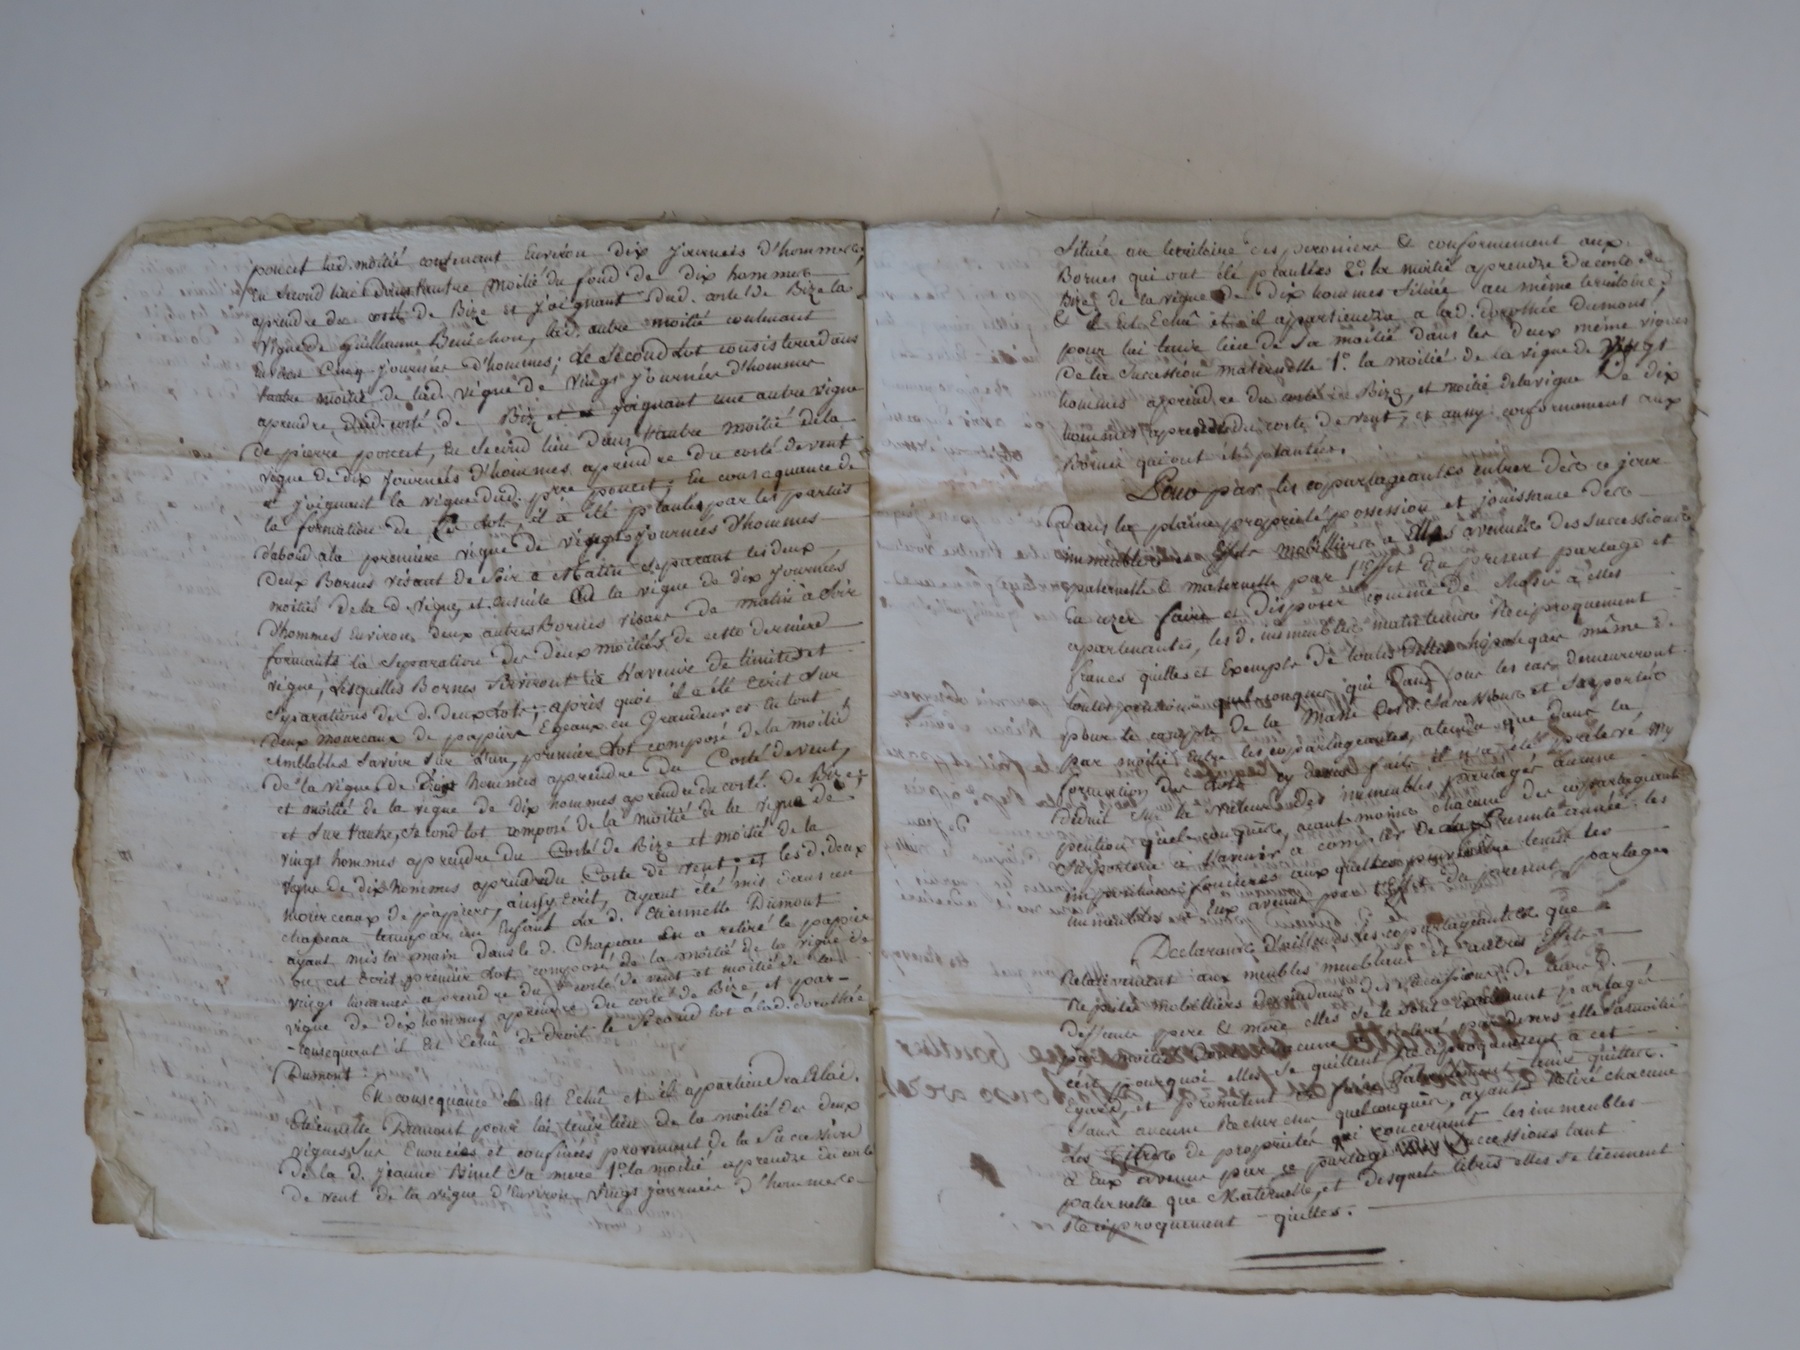 poncet lad. moitié contenant Environ dix journées d'hommes,
En second lieu Dans l'autre moitié du fond de dix hommes
aprendre du costé de Bize et joignant dud. costé de Bize la
vigne de Guillaume Benéchon, lad. autre moitié contenant
Cinq journées d'hommes; Le second Lot consistera dans
l'autre moitié de lad. vigne de vingt journées d'hommes
aprendre dud. costé de Bize et joignant une autre vigne
de pierre poncet, En second lieu dans l'autre moitié de la
vigne de dix journées d'hommes aprendre du costé de vent
et joignant la vigne dud. pierre poncet, En consequance de
la formation de ces Lots, il a été planté par les parties
d'abord a la premiere vigne de vingt journées d'hommes
deux Bornes visant de Soir a Matin separant les deux
moitiés de la d. vigne, et ensuite a la vigne de dix journées
d'hommes Environ deux autres Bornes visant de matin à Soir
formants la separation des deux moitiés de cette derniere
vigne, Lesquelles Bornes serviront a l'avenir de limites et
separations des d. deux Lots, après quoi il a été Ecrit sur
deux mourceaux de papiers Egeaux en Grandeur et en tout
semblables savoir sur l'un, premier Lot composé de la moitié
de la vigne de vingt hommes aprendre du Costé de vent,
et moitié de la vigne de dix hommes aprendre du costé de Bize,
et sur l'autre, second lot composé de la moitié de la vigne de
vingt hommes aprendre du Costé de Bize et moitié de la
vigne de dix hommes aprendre du Costé de vent, et les d. deux
mourceaux de papiers, ainsy Ecrit, ayant été mis dans un
chapeau tenu par un Enfant La d. Etiennette Dumont
ayant mis la main dans le d. Chapeau en a retiré le papier
ou est Ecrit premier Lot composé de la moitié de la vigne de
vingt hommes aprendre du costé de vent et moitié de la
vigne de dix hommes aprendre du costé de Bize, et par-
-consequant il Est Echû de droit le second lot à lad. dorothée
Dumont.
En consequance il Est Echû et il appartiendra a lad.
Etiennette Dumont pour lui tenir lieu de la moitié des deux
vignes sus Enoncées et confinées provenant de la succession
de la d. Jeanne Binel sa mere 1º. la moitié aprendre du costé
de vent de la vigne d'Environ vingt journées d'hommes
située au territoire des peroniers & conformement aux
Bornes qui ont été plantées 2º. la moitié aprendre du costé de
Bize de la vigne de dix hommes située au même territoire,
& il Est Echû et il apartiendra a lad. dorothée dumont,
pour lui tenir lieu de sa moitié dans les deux même vignes
de la succession maternelle 1º. la moitié de la vigne de vingt
hommes aprendre du costé de Bize, et moitié de la vigne de dix
hommes aprendre du costé de vent, et aussy conformement aux
Bornes qui ont été plantées.
Pour par les copartageantes entrer dès ce jour
dans la plaine proprieté possession et jouissance des
immeubles et Effets mobilliers a Elles avenues des successions
paternelle & maternelle par l'effet du present partage et
En uzer faire et disposer comme de chose à elles
apartenantes, les d. immeubles maintenues Reciproquement
francs quittes et Exempts de toutes dettes hipoteques même de
toutes pentions quelconques qui dans tous les cas demeureront
pour le compte de la Masse des d. successions et suportés
par moitié Entre les copartageantes, atendu que dans la
formation des Lots cy devant faits il n'a été prélevé ny
déduit sur la valeur des immeubles partagés aucune
pention quelconques, neant moins chacune des copartageants
suportera a l'avenir a compter de la presente année les
impositions foncieres aux quelles pourront être tenus les
immeubles a Eux avenus par l'effet du present partage
Declarants d'ailleurs les copartageantes que
Relativement aux meubles meublants et autres Effets
Reputés mobilliers dependans des successions de leurs d.
deffunts pere & mere elles se le sont Egallement partagé
par moitié chacune retiré par devers elle sa moitié
c'est pourquoi elles se quittent Reciproquement à cet
Egard, et promettent se faire Valablement tenir quittes
sans aucune Recherche quelconques, ayant Retiré chacune
Les titres de proprietés qui concernent les immeubles
a Eux avenus par ce partage successions tant
paternelle que Maternelle, et desquels titres elles se tiennent
Reciproquement quittes.